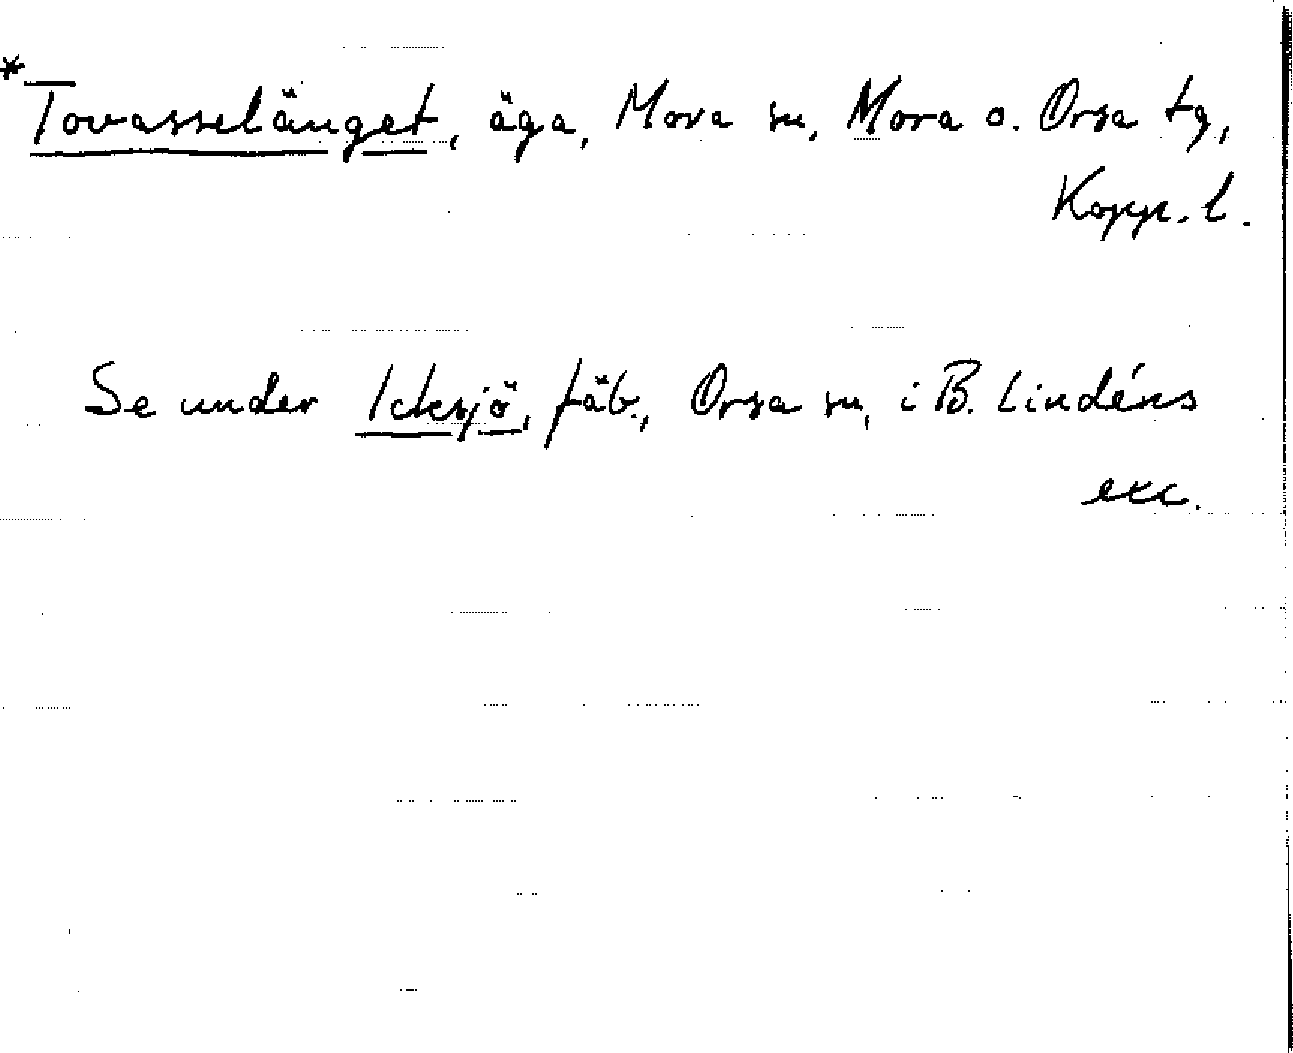 *Tovasselänget, äga, Mora sn, Mora o. Orsa tg,
Kopp. l.
Se under Icksjö, fäb., Orsa sn, i B. Lindéns
exc.